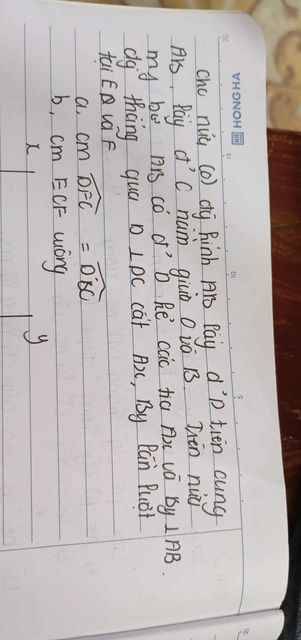 HONG HA
Cho nửa (O) đg kính AB lấy đ' D trên cung
AB, lấy đ' C nằm giữa O và B. Trên nửa
mp bờ AB có đ' D kẻ các tia Ax và By ⊥ AB.
đg thẳng qua D ⊥ DC cắt Ax, By lần lượt
tại E và F
a, cm DFC = DBC
b, cm ECF vuông
x
y